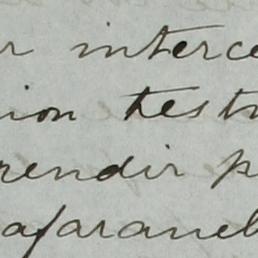 r interce
ion testi
rendir p
afaranel